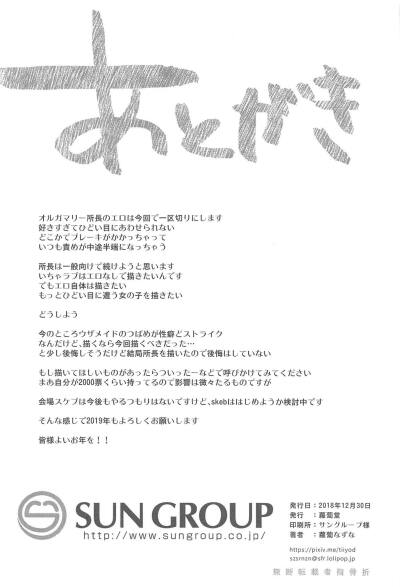 あとがき
オルガマリー所長のエロは今回で一区切りにします
好きすぎてひどい目にあわせられない
どこかでブレーキがかかっちゃって
いつも責めが中途半端になっちゃう
所長は一般向けで続けようと思います
いちゃラブはエロなしで描きたいんです
でもエロ自体は描きたい
もっとひどい目に遭う女の子を描きたい
どうしよう
今のところウザメイドのつばめが性癖どストライク
なんだけど、描くなら今回描くべきだった…
と少し後悔しそうだけど結局所長を描いたので後悔はしていない
もし描いてほしいものがあったらついったーなどで呼びかけてみてください
まあ自分が2000票くらい持ってるので影響は微々たるものですが
会場スケブは今後もやるつもりはないですけど、skebははじめようか検討中です
そんな感じで2019年もよろしくお願いします
皆様よいお年を！！
SUN GROUP
http://www.sungroup.co.jp/
発行日：2018年12月30日
発行：蘿蔔堂
印刷所：サングループ様
著者：蘿蔔なずな
https://pixiv.me/tiiyod
szsrnzn@sfr.lolipop.jp
無断転載者陶骨折